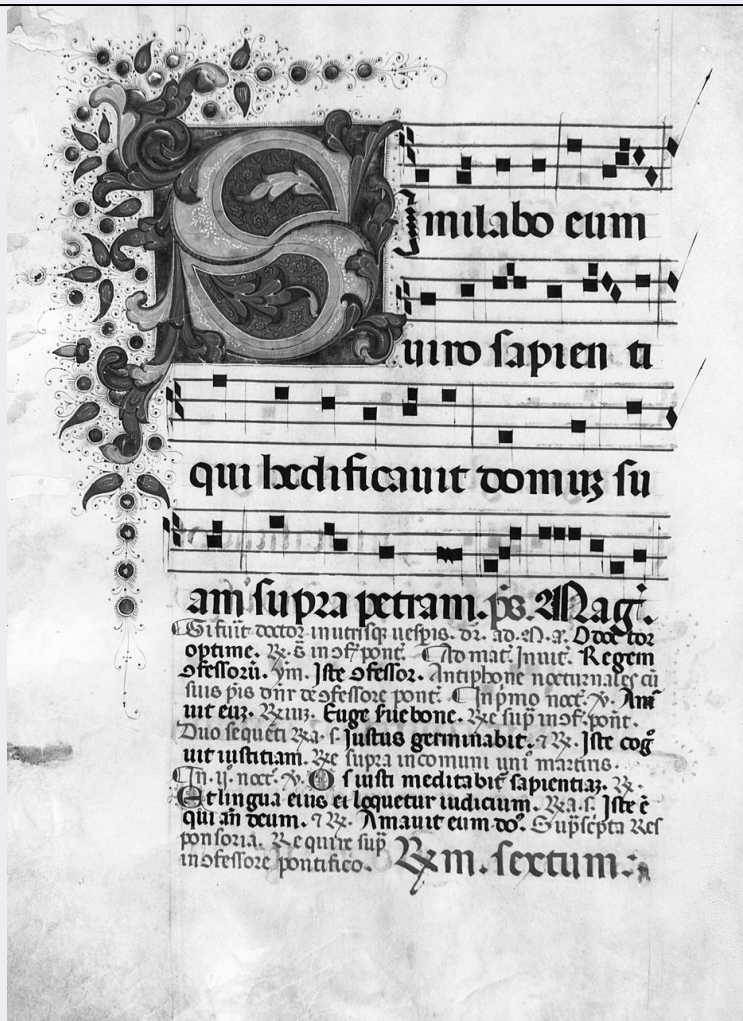 Similabo eum
uiro sapien ti
qui hedificauit domuʒ su
am supra petram. p̄s. Mag̃.
Si fuit doctor in utrisq; uesp̄is. dr̄. ad. M. a. O doctor
optime. ℟. ḡ in ɔf̄ pont̄. Ad mat̄ Inuit̄. Regem
ɔfessorū. ym̄. Iste ɔfessor. Antiphone nocturnales cū
suis p̄is dn̄r de ɔfessore pont̄. In p̄mo noct̄. ℣. Ama
uit euʒ. ℟. iiij. Euge serue bone. ℟e sup̄ in ɔf̄. pont̄.
Duo sequēti ℟. a. s. Iustus germinabit. ⁊ ℟. Iste cog̃
uit iustitiam. ℟e supra in comuni uniꝰ martiris.
In̄. ij. noct̄. ℣. Os iusti meditabit̄ sapientiaʒ. ℟.
Et lingua eius ei loquetur iudicium. ℟. a. s. Iste ē
qui an̄ deum. ⁊ ℟. Amauit eum do᷒. Sup̄sc̄pta Res
ponsoria. Require sup̄
in ɔfessore pontifico. ℟m. sextum.